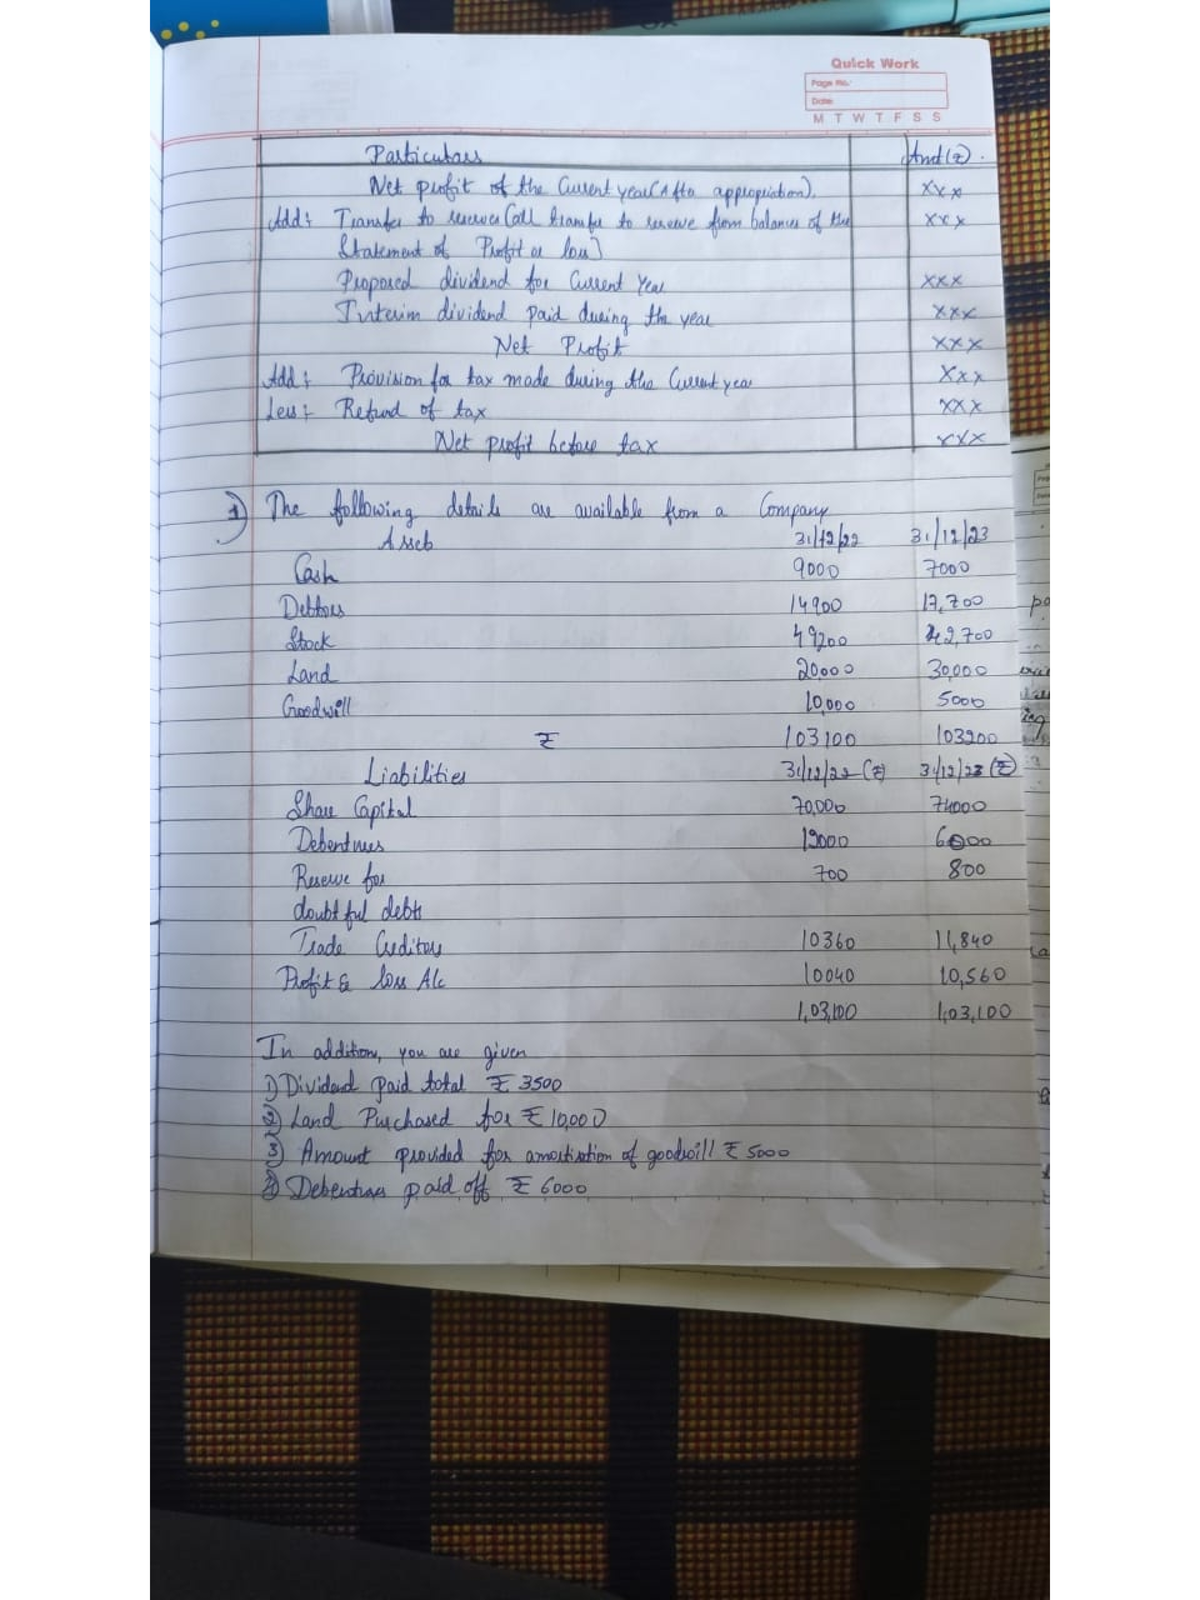 Quick Work
Page No.
Date
M T W T F S S
Particulars Amt(₹).
Net profit of the Current year (After appropriation). xxx
Add: Transfer to reserve (all transfer to reserve from balance of the xxx
Statement of Profit or loss)
Proposed dividend for Current Year xxx
Interim dividend paid during the year xxx
Net Profit xxx
Add: Provision for tax made during the Current year xxx
Less: Refund of tax xxx
Net profit before tax xxx
1) The following details are available from a Company
Assets 31/12/22 31/12/23
Cash 9000 7000
Debtors 14900 17,700
Stock 49200 42,700
Land 20000 30,000
Goodwill 10,000 5000
₹ 103100 103200
Liabilities 31/12/22 (₹) 31/12/23 (₹)
Share Capital 70,000 74000
Debentures 12000 6000
Reserve for 700 800
doubtful debts
Trade Creditors 10360 11,840
Profit & loss A/c 10040 10,560
1,03,100 1,03,100
In addition, you are given
1) Dividend paid total ₹ 3500
2) Land Purchased for ₹ 10,000
3) Amount provided for amortisation of goodwill ₹ 5000
Debentures paid off ₹ 6000